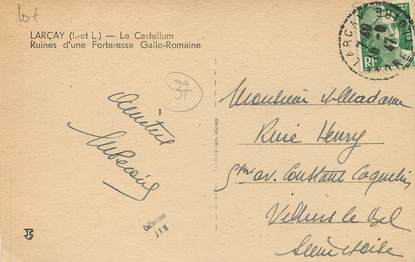 lot
LARÇAY (I.-et L.) — Le Castellum
Ruines d'une Forteresse Gallo-Romaine
37
LARÇAY
RF
Amitiés
Monsieur et Madame
René Henry
av. Constant Coquelin
Villiers le Bel
Seine et Oise
Collection
JPM